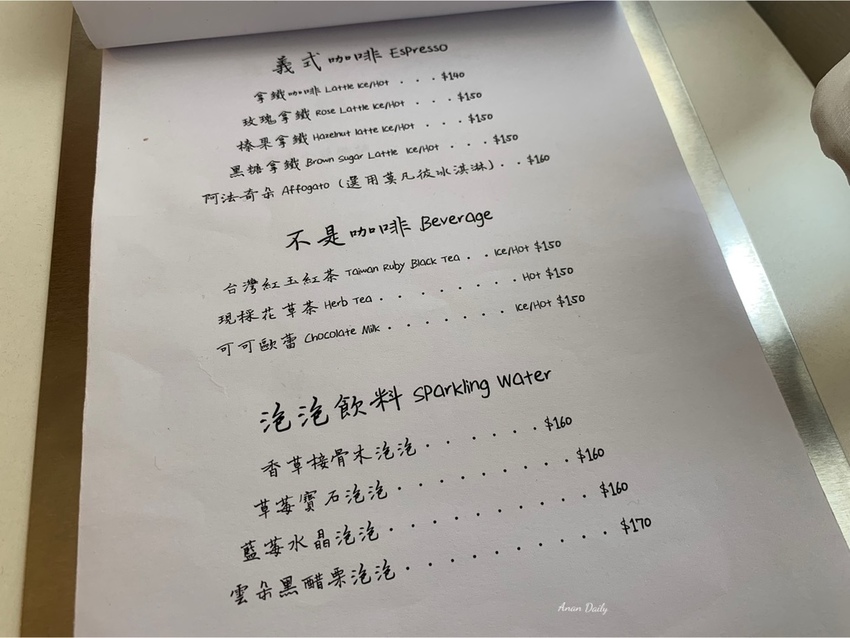 義式咖啡 Espresso
拿鐵咖啡 Lattle Ice/Hot . . . $140
玫瑰拿鐵 Rose Lattle Ice/Hot . . . $150
榛果拿鐵 Hazelnut latte Ice/Hot . . . $150
黑糖拿鐵 Brown sugar Lattle Ice/Hot . . . $150
阿法奇朵 Affogato (選用莫凡彼冰淇淋) . . $160
不是咖啡 Beverage
台灣紅玉紅茶 Taiwan Ruby Black Tea . . Ice/Hot $150
現採花草茶 Herb Tea . . . . . . . . Hot $150
可可歐蕾 Chocolate Milk . . . . . . . Ice/Hot $150
泡泡飲料 Sparkling Water
香草接骨木泡泡 . . . . . . $160
草莓寶石泡泡 . . . . . . . . . $160
藍莓水晶泡泡 . . . . . . . . . . $160
雲朵黑醋栗泡泡 . . . . . . . . . . $170
Anan Daily